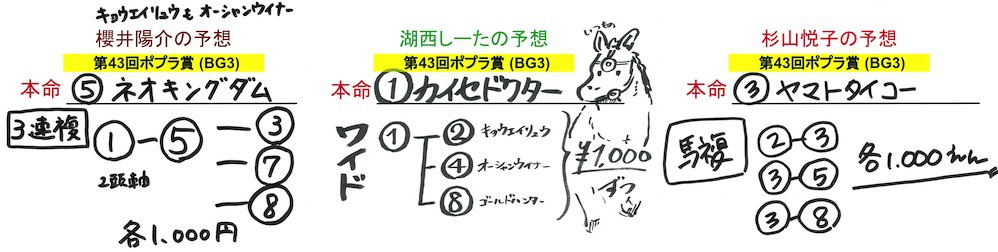 キョウエイリュウも オーシャンウイナー
櫻井陽介の予想
第43回ポプラ賞 (BG3)
本命 ⑤ ネオキングダム
3連複
① - ⑤ - ③
⑦
⑧
2頭軸
各1,000円
湖西しーたの予想
第43回ポプラ賞 (BG3)
本命 ① カイセドクター
いつもの
ワイド
① ② キョウエイリュウ
④ オーシャンウイナー
⑧ ゴールドハンター
¥1,000
ずつ
杉山悦子の予想
第43回ポプラ賞 (BG3)
本命 ③ ヤマトタイコー
馬複
② - ③
③ - ⑤
③ - ⑧
各1.000えん